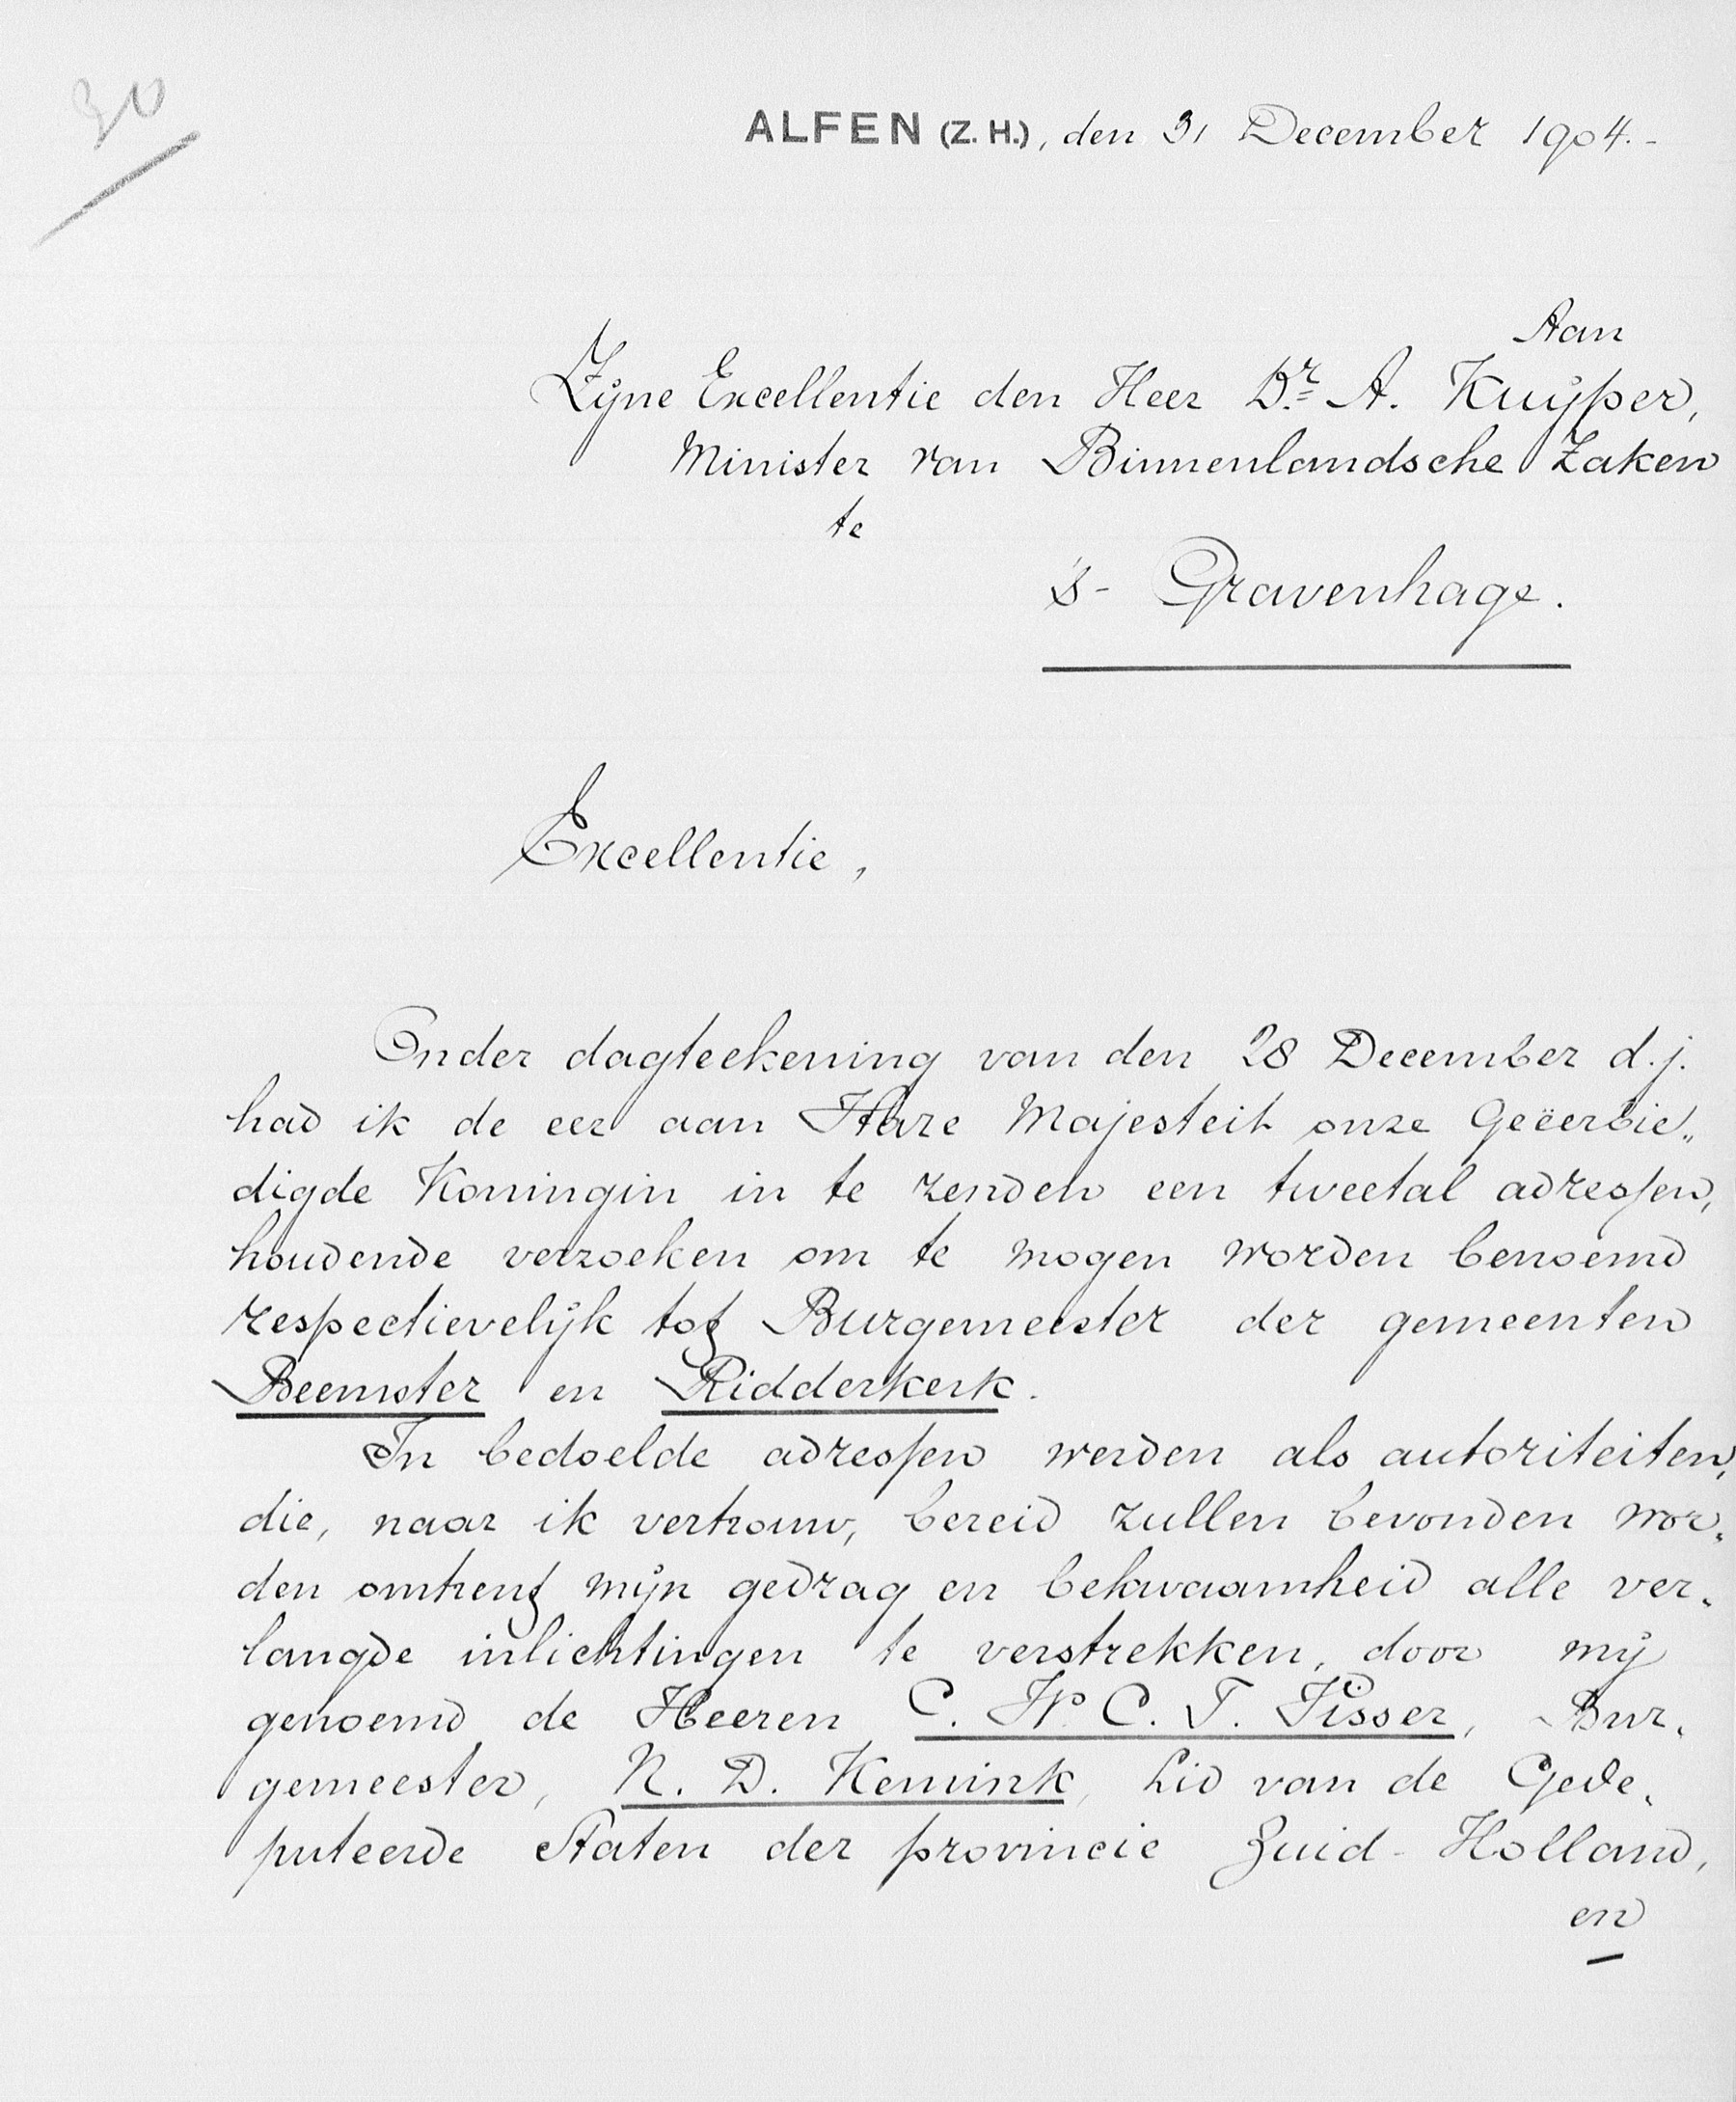 30
ALFEN (Z. H.), den 31 December 1904.-
Aan
Zijne Excellentie den Heer Dr. A. Kuijper,
Minister van Binnenlandsche Zaken
te
's- Gravenhage.
Excellentie,
Onder dagteekening van den 28 December d.j.
had ik de eer aan Hare Majesteit onze Geëerbie„
digde Koningin in te zenden een tweetal adressen,
houdende verzoeken om te mogen worden benoemd
respectievelijk tot Burgemeester der gemeenten
Beemster en Ridderkerk.
In bedoelde adressen werden als autoriteiten,
die, naar ik vertrouw, bereid zullen bevonden wor„
den omtrent mijn gedrag en bekwaamheid alle ver„
langde inlichtingen te verstrekken, door mij
genoemd de Heeren C. W. C. T. Visser, Bur„
gemeester, N. D. Kemink, Lid van de Gede„
puteerde Staten der provincie Zuid-Holland,
en